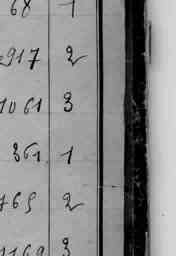 68 1
917 2
1061 3
361. 1
765 2
1169 3